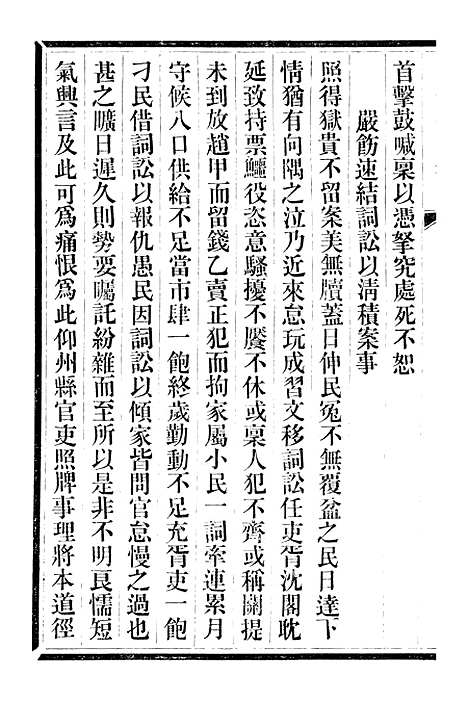 首擊鼓喊稟以憑拏究處死不恕
嚴飭速結詞訟以淸積案事
照得獄貴不留案美無牘蓋日伸民冤不無覆盆之民日達下
情猶有向隅之泣乃近來怠玩成習文移詞訟任吏胥沈閣耽
延致持票鱷役恣意騷擾不饜不休或稟人犯不齊或稱關提
未到放趙甲而留錢乙賣正犯而拘家屬小民一詞牽連累月
守候八口供給不足當市肆一飽終歲勤動不足充胥吏一飽
刁民借詞訟以報仇愚民因詞訟以傾家皆問官怠慢之過也
甚之曠日遲久則勢要囑託紛雜而至所以是非不明良懦短
氣興言及此可爲痛恨爲此仰州縣官吏照牌事理將本道徑